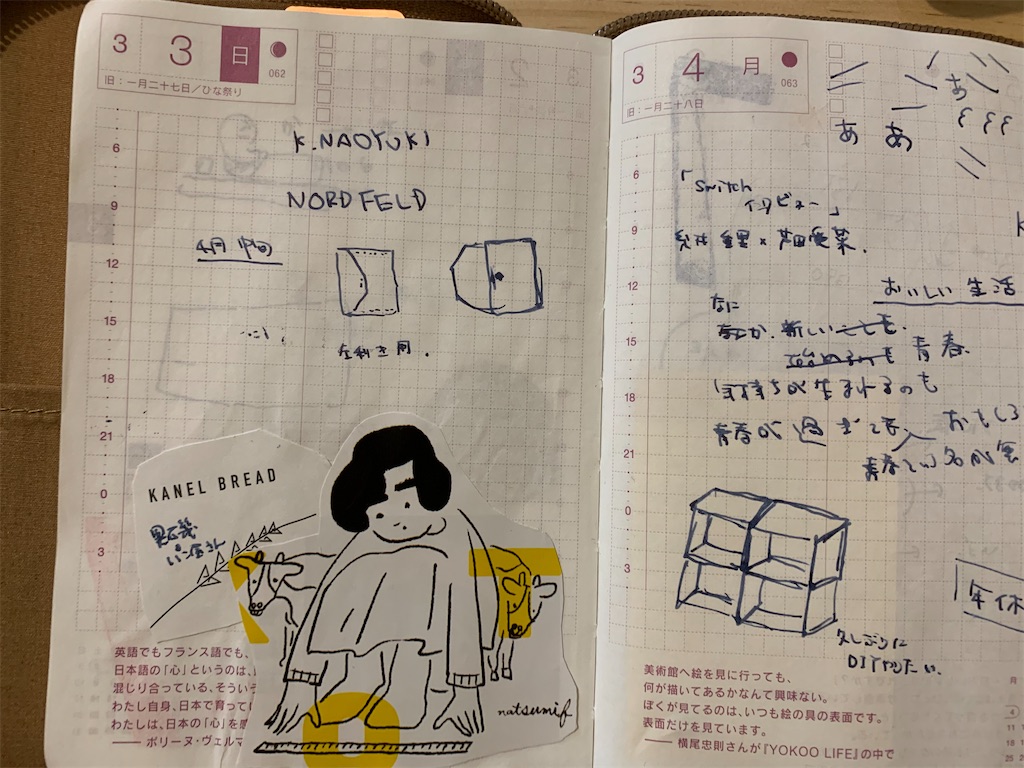 3 3 日
062
旧：一月二十七日／ひな祭り
K.NAOYUKI
NORDFELD
4月 中旬
6
9
12
15
18
21
0
3
KANEL BREAD
黒石磯
パン屋さん
natsumif
英語でもフランス語でも、
日本語の「心」というのは、
混じり合っている、そういう
わたし自身、日本で育って
わたしは、日本の「心」を
── ポリーヌ・ヴェルマ
3 4 月
063
旧：一月二十八日
あ
あ あ
「Switch
インタビュー」
糸井重里×芦田愛菜.
おいしい生活
なに
か、新しいことも、
始めるのも 青春.
気持ちが生まれるのも
青春が過ぎても、
おもしろ
青春という名が
6
9
12
15
18
21
0
3
年休
久しぶりに
DIYやりたい.
美術館へ絵を見に行っても、
何が描いてあるかなんて興味ない。
ぼくが見てるのは、いつも絵の具の表面です。
表面だけを見ています。
── 横尾忠則さんが『YOKOO LIFE』の中で
月
4
11
18
25